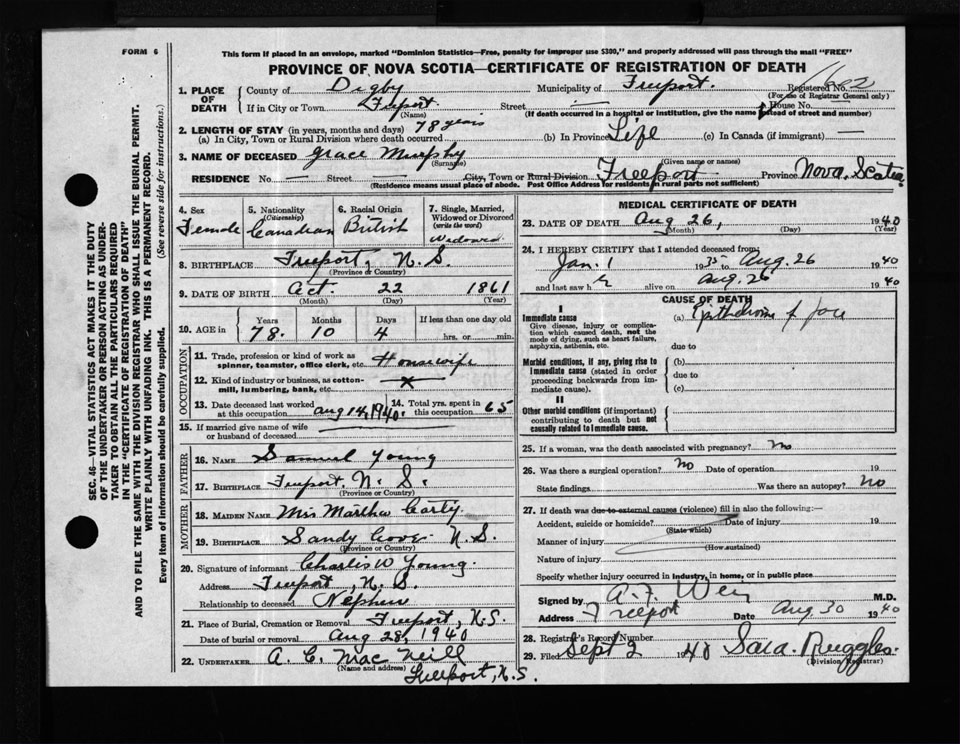 FORM 6
This form if placed in an envelope, marked "Dominion Statistics—Free, penalty for improper use $300," and properly addressed will pass through the mail "FREE"
PROVINCE OF NOVA SCOTIA—CERTIFICATE OF REGISTRATION OF DEATH
1. PLACE OF DEATH
County of Digby Municipality of Freeport. Registered No.
(For use of Registrar General only)
If in City or Town Freeport. Street — House No.
(Name) (If death occurred in a hospital or institution, give the name instead of street and number)
2. LENGTH OF STAY (in years, months and days) 78 years
(a) In City, Town or Rural Division where death occurred (b) In Province Life (c) In Canada (if immigrant) —
3. NAME OF DECEASED Grace Murphy
(Surname) (Given name or names)
RESIDENCE No. — Street — City, Town or Rural Division Freeport Province Nova Scotia
(Residence means usual place of abode. Post Office Address for residents in rural parts not sufficient)
4. Sex Female
5. Nationality (Citizenship) Canadian
6. Racial Origin British
7. Single, Married, Widowed or Divorced (write the word) Widowed
8. BIRTHPLACE Freeport, N.S.
(Province or Country)
9. DATE OF BIRTH Oct. 22 1861
(Month) (Day) (Year)
10. AGE in Years Months Days If less than one day old
78. 10 4 hrs. or min.
OCCUPATION
11. Trade, profession or kind of work as spinner, teamster, office clerk, etc. Housewife
12. Kind of industry or business, as cotton-mill, lumbering, bank, etc.
13. Date deceased last worked at this occupation Aug 14, 1940.
14. Total yrs. spent in this occupation 65
15. If married give name of wife or husband of deceased
FATHER
16. NAME Samuel Young
17. BIRTHPLACE Freeport N. S.
(Province or Country)
MOTHER
18. MAIDEN NAME Mis Martha Carty
19. BIRTHPLACE Sandy Cove N.S.
(Province or Country)
20. Signature of informant Charlis W Young.
Address Freeport, N. S.
Relationship to deceased Nephew
21. Place of Burial, Cremation or Removal Freeport, N.S.
Date of burial or removal Aug 28, 1940
22. UNDERTAKER A. C. Mac Neill
(Name and address)
Freeport, N.S.
MEDICAL CERTIFICATE OF DEATH
23. DATE OF DEATH Aug 26, 1940
(Month) (Day) (Year)
24. I HEREBY CERTIFY that I attended deceased from:
Jan. 1 1935 to Aug. 26 1940
and last saw h er alive on Aug. 26 1940
CAUSE OF DEATH
I
Immediate cause
Give disease, injury or complication which caused death, not the mode of dying, such as heart failure, asphyxia, asthenia, etc.
(a) Epithelioma of
due to
Morbid conditions, if any, giving rise to immediate cause (stated in order proceeding backwards from immediate cause).
(b)
due to
(c)
II
Other morbid conditions (if important) contributing to death but not causally related to immediate cause.
25. If a woman, was the death associated with pregnancy? No
26. Was there a surgical operation? No Date of operation 19
State findings Was there an autopsy? No
27. If death was due to external causes (violence) fill in also the following:—
Accident, suicide or homicide? Date of injury 19
(State which)
Manner of injury
(How sustained)
Nature of injury
Specify whether injury occurred in industry, in home, or in public place
Signed by M.D.
Address Freeport Date Aug 30 1940
28. Registrar's Record Number
29. Filed Sept 2 1940 Sara. Ruggles.
(Division Registrar)
SEC. 46—VITAL STATISTICS ACT MAKES IT THE DUTY
OF THE UNDERTAKER OR PERSON ACTING AS UNDER-
TAKER TO OBTAIN ALL THE PARTICULARS REQUIRED
IN THE "CERTIFICATE OF REGISTRATION OF DEATH"
AND TO FILE THE SAME WITH THE DIVISION REGISTRAR WHO SHALL ISSUE THE BURIAL PERMIT.
WRITE PLAINLY WITH UNFADING INK. THIS IS A PERMANENT RECORD.
Every item of information should be carefully supplied. (See reverse side for instructions.)